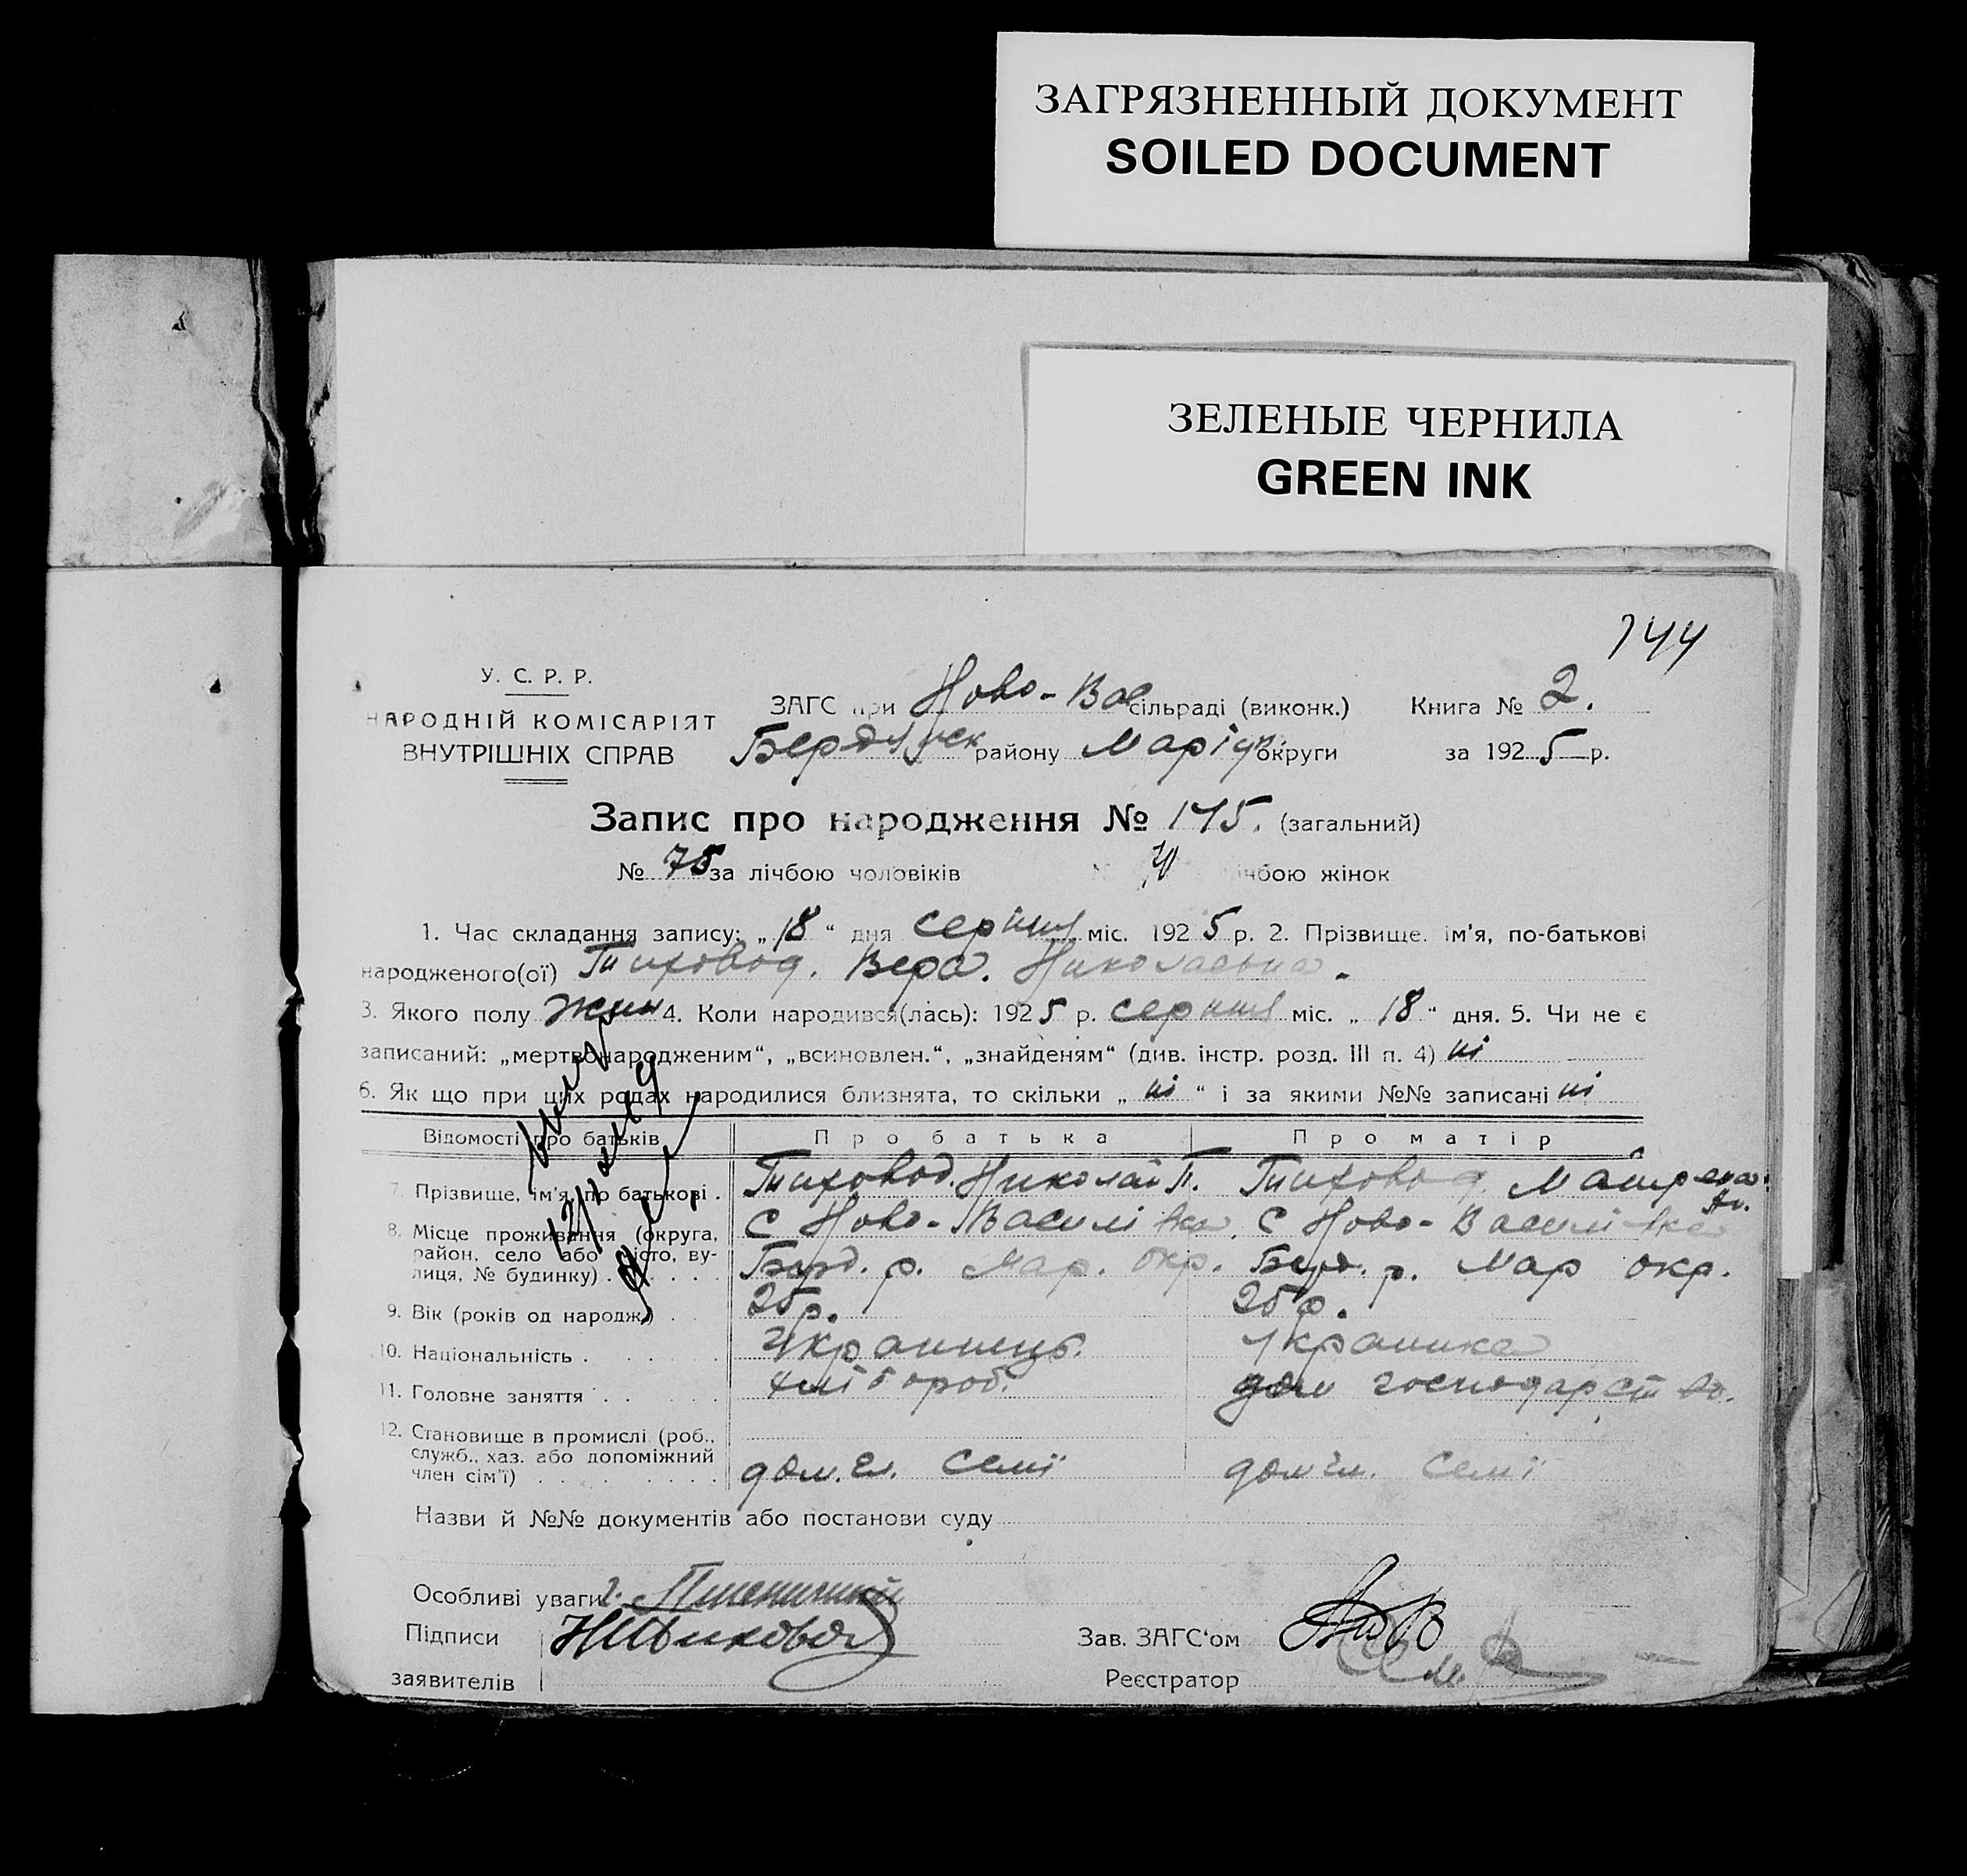 ЗАГРЯЗНЕННЫЙ ДОКУМЕНТ
SOILED DOCUMENT
ЗЕЛЕНЫЕ ЧЕРНИЛА
GREEN INK
144
У. С. Р. Р.
НАРОДНІЙ КОМІСАРІЯТ
ВНУТРІШНІХ СПРАВ
ЗАГС при Ново-Вас сільраді (виконк.) Книга № 2.
Бердянск району Маріуп. округи за 1925 р.
Запис про народження № 145. (загальний)
№ 75 за лічбою чоловіків № 70 лічбою жінок
1. Час складання запису: „18“ дня серпня міс. 1925 р. 2. Прізвище, ім'я, по-батькові
народженого(ої) Тиховод. Вера. Николаевна.
3. Якого полу жин 4. Коли народився(лась): 1925 р. серпня міс. „18“ дня. 5. Чи не є
записаний: „мертвонародженим“, „всиновлен.“, „знайденям“ (див. інстр. розд. III п. 4) ні
6. Як що при цих родах народилися близнята, то скільки „ні“ і за якими №№ записані ні
Відомості про батьків Про батька Про матір
7. Прізвище, ім'я, по батькові . Тиховод. Николай П. Тиховод. Матрена
8. Місце проживання (округа, район, село або місто, вулиця, № будинку) . С Ново-Василівка С Ново-Василівка
Берд. р. Мар. окр. Берд. р. Мар окр.
9. Вік (років од народж.) . . 25 р. 25 р.
10. Національність . Українець. Українка
11. Головне заняття . . хлібороб. дом господарство.
12. Становище в промислі (роб., служб., хаз. або допоміжний член сім'ї) . дом. чл. семї дом чл. семї
Назви й №№ документів або постанови суду
Особливі уваги Пшеничний
Підписи НТиховод Зав. ЗАГС'ом
заявителів Реєстратор